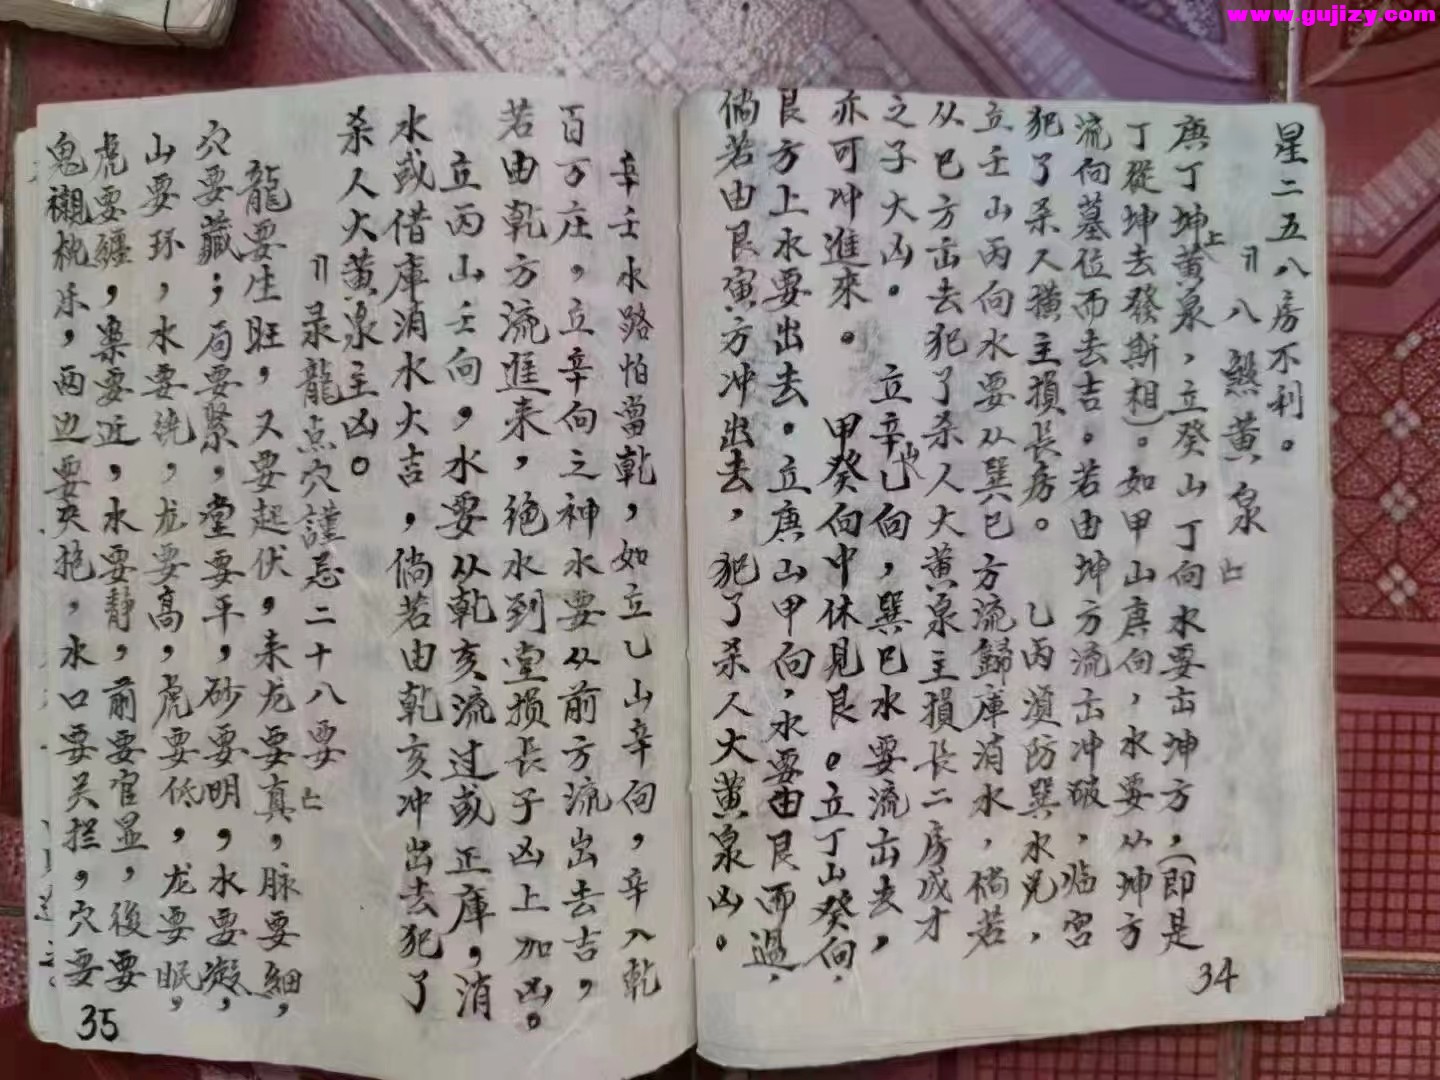 www.gujizy.com
星二五八房不利。
『八煞黃泉』
庚丁坤上黃泉，立癸山丁向水要出坤方，(即是
丁從坤去發斯相)。如甲山庚向，水要从坤方
流向墓位而去吉。若由坤方流出冲破，临官
犯了杀人橫主損長房。 乙丙須防巽水兇，
立壬山丙向水要从巽巳方流歸庫消水，倘若
从巳方出去犯了杀人大黄泉主損長二房成才
之子大凶。 立辛山乙向，巽巳水要流出去，
亦可冲進來。 甲癸向中休見艮。立丁山癸向，
艮方上水要出去。立庚山甲向，水要由艮而過，
倘若由艮寅方冲出去，犯了杀人大黄泉凶。
34
辛壬水路怕當乾，如立乙山辛向，辛入乾
百万庄，立辛向之神水要从前方流出去吉，
若由乾方流進来，绝水到堂损長子凶上加凶。
立丙山壬向，水要从乾亥流过或正庫，消
水或借庫消水大吉，倘若由乾亥冲出去犯了
杀人大黄泉主凶。
『录龍点穴謹忌二十八要』
龍要生旺，又要起伏，来龙要真，脉要細，
穴要藏；局要緊，堂要平，砂要明，水要凝，
山要环，水要绕，龙要高，虎要低，龙要眠，
虎要纏，案要近，水要静，前要官显，後要
鬼襯枕乐，两边要夹抱，水口要关拦，穴要
35